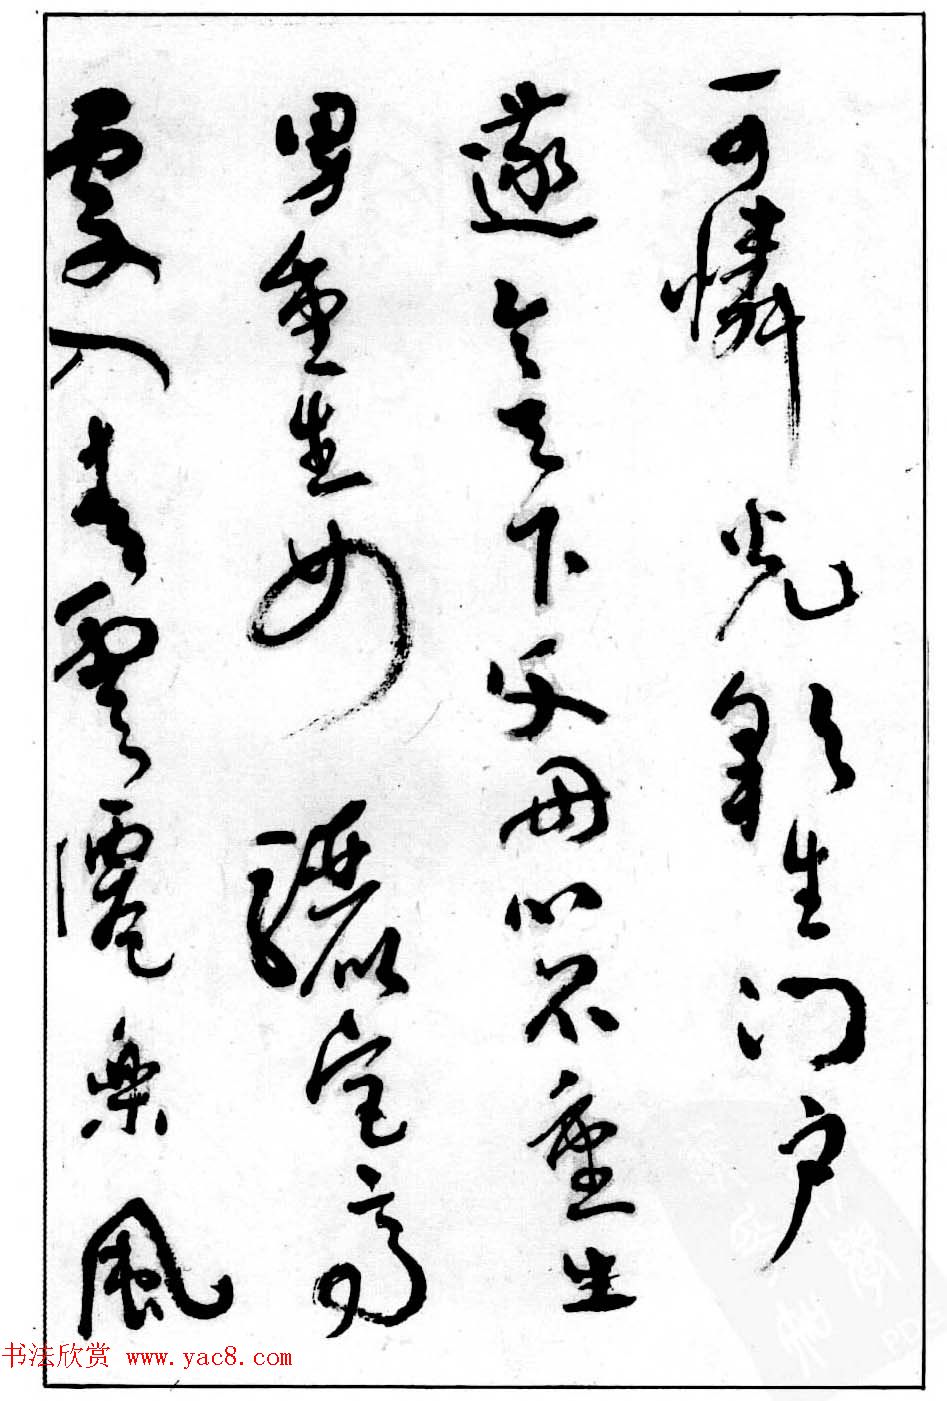 可憐光彩生门户
遂令天下父母心不重生
男重生女驪宫高
處入青雲僊樂風
书法欣赏 www.yac8.com